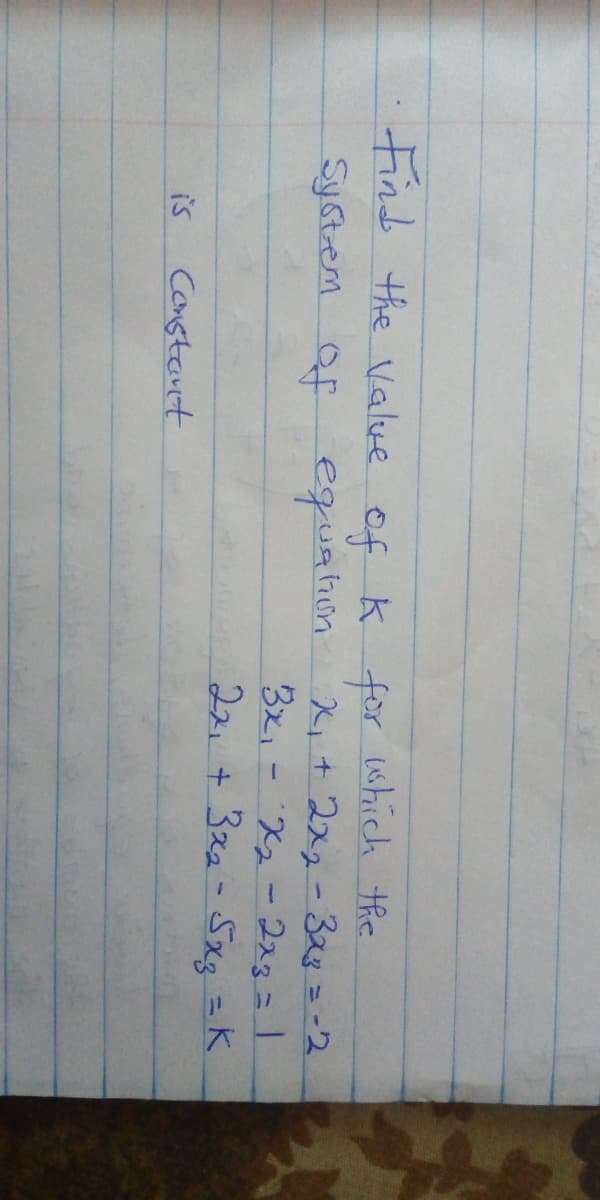 . Find the value of k for which the
system of equation x₁ + 2x₂ - 3x₃ = -2
3x₁ - x₂ - 2x₃ = 1
2x₁ + 3x₂ - 5x₃ = K
is Constant